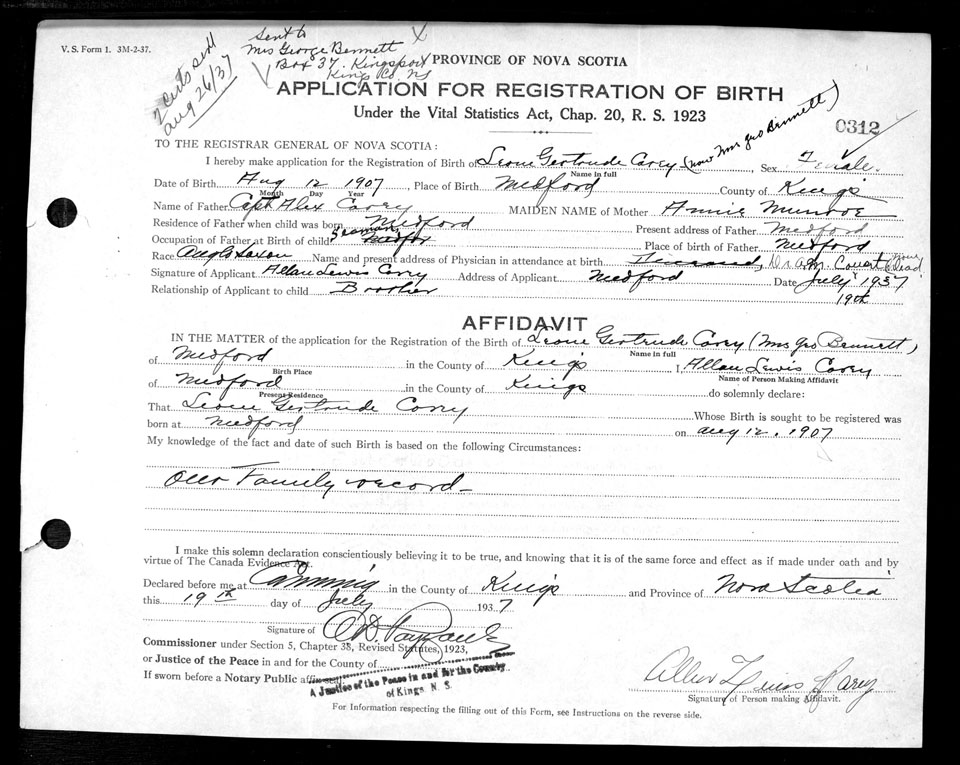 V. S. Form 1. 3M-2-37.
2 certs sent
Aug 26/37
Sent to
Mrs George Bennett
Box 37, Kingsport
Kings Co. NS
PROVINCE OF NOVA SCOTIA
APPLICATION FOR REGISTRATION OF BIRTH
Under the Vital Statistics Act, Chap. 20, R. S. 1923
0312
TO THE REGISTRAR GENERAL OF NOVA SCOTIA:
I hereby make application for the Registration of Birth of Leone Gertrude Corey (now Mrs Geo Bennett) Sex Female.
Name in full
Date of Birth Aug 12 1907, Place of Birth Medford County of Kings
Month Day Year
Name of Father Capt Alex Corey MAIDEN NAME of Mother Annie Munroe
Residence of Father when child was born Medford Present address of Father Medford
Occupation of Father at Birth of child Seaman Place of birth of Father Medford
Race Anglo Saxon Name and present address of Physician in attendance at birth Deceased, Dr now Dead
Signature of Applicant Allan Lewis Corey Address of Applicant Medford Date July 1937
19th
Relationship of Applicant to child Brother
AFFIDAVIT
IN THE MATTER of the application for the Registration of the Birth of Leone Gertrude Corey (Mrs Geo Bennett)
Name in full
of Medford in the County of Kings I, Allan Lewis Corey
Birth Place Name of Person Making Affidavit
of Medford in the County of Kings do solemnly declare:
Present Residence
That Leone Gertrude Corey Whose Birth is sought to be registered was
born at Medford on Aug 12, 1907
My knowledge of the fact and date of such Birth is based on the following Circumstances:
Our Family record
I make this solemn declaration conscientiously believing it to be true, and knowing that it is of the same force and effect as if made under oath and by
virtue of The Canada Evidence Act.
Declared before me at Canning in the County of Kings and Province of Nova Scotia
this 19th day of July 1937
Signature of
Commissioner under Section 5, Chapter 38, Revised Statutes, 1923,
or Justice of the Peace in and for the County of
If sworn before a Notary Public affix seal
A Justice of the Peace in and for the County
of Kings N. S.
Allan Lewis Corey
Signature of Person making Affidavit.
For Information respecting the filling out of this Form, see Instructions on the reverse side.